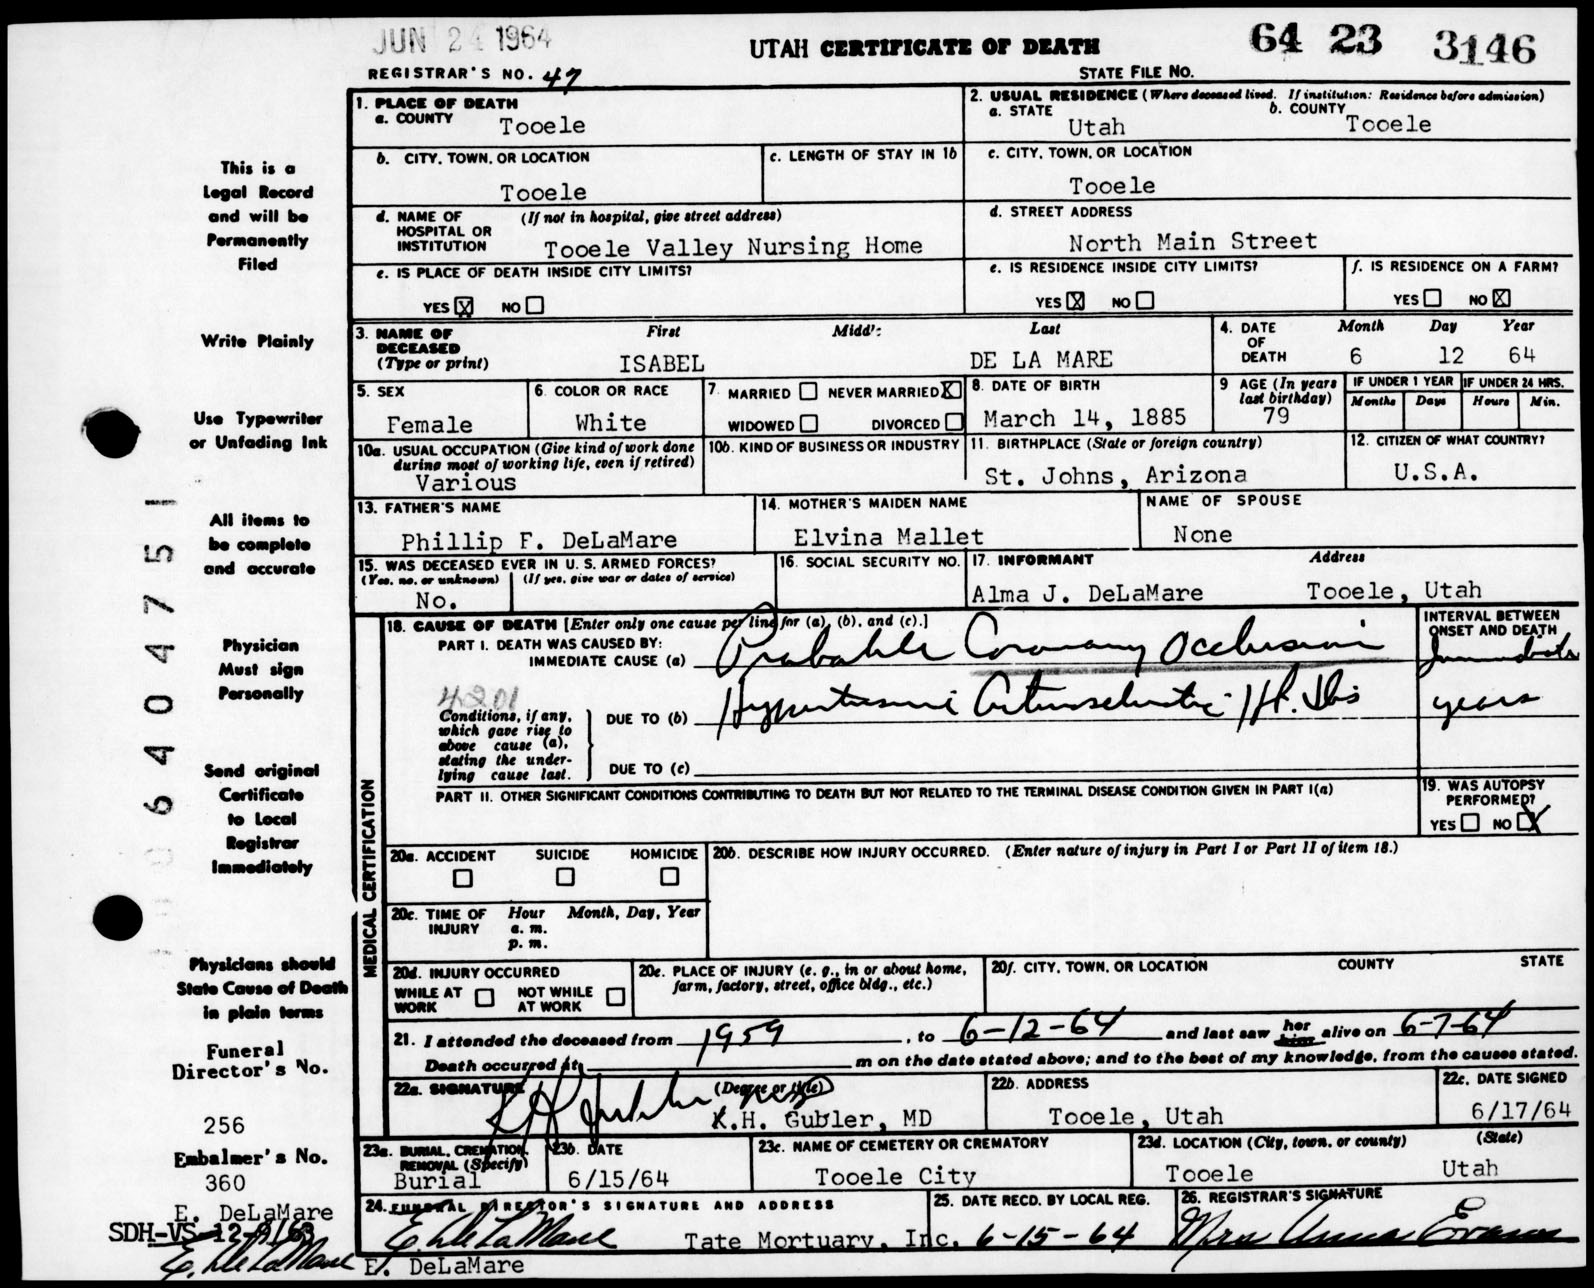 JUN 24 1964
UTAH CERTIFICATE OF DEATH
64 23 3146
REGISTRAR'S NO. 47
STATE FILE NO.
This is a
Legal Record
and will be
Permanently
Filed
Write Plainly
Use Typewriter
or Unfading Ink
All items to
be complete
and accurate
Physician
Must sign
Personally
Send original
Certificate
to Local
Registrar
Immediately
Physicians should
State Cause of Death
in plain terms
Funeral
Director's No.
256
Embalmer's No.
360
E. DeLaMare
SDH-VS-12-
E. DeLaMare
640475
1. PLACE OF DEATH
a. COUNTY Tooele
2. USUAL RESIDENCE (Where deceased lived. If institution: Residence before admission)
a. STATE Utah
b. COUNTY Tooele
b. CITY, TOWN, OR LOCATION
Tooele
c. LENGTH OF STAY IN 1b
c. CITY, TOWN, OR LOCATION
Tooele
d. NAME OF HOSPITAL OR INSTITUTION (If not in hospital, give street address)
Tooele Valley Nursing Home
d. STREET ADDRESS
North Main Street
e. IS PLACE OF DEATH INSIDE CITY LIMITS?
YES X NO
e. IS RESIDENCE INSIDE CITY LIMITS?
YES X NO
f. IS RESIDENCE ON A FARM?
YES NO X
3. NAME OF DECEASED (Type or print)
First Last
ISABEL DE LA MARE
4. DATE OF DEATH
Month Day Year
6 12 64
5. SEX
Female
6. COLOR OR RACE
White
7. MARRIED NEVER MARRIED X
WIDOWED DIVORCED
8. DATE OF BIRTH
March 14, 1885
9 AGE (In years last birthday)
79
IF UNDER 1 YEAR
Months Days
IF UNDER 24 HRS.
Hours Min.
10a. USUAL OCCUPATION (Give kind of work done during most of working life, even if retired)
Various
10b. KIND OF BUSINESS OR INDUSTRY
11. BIRTHPLACE (State or foreign country)
St. Johns, Arizona
12. CITIZEN OF WHAT COUNTRY?
U.S.A.
13. FATHER'S NAME
Phillip F. DeLaMare
14. MOTHER'S MAIDEN NAME
Elvina Mallet
NAME OF SPOUSE
None
15. WAS DECEASED EVER IN U. S. ARMED FORCES?
(Yes, no, or unknown) (If yes, give war or dates of service)
No.
16. SOCIAL SECURITY NO.
17. INFORMANT Address
Alma J. DeLaMare Tooele, Utah
MEDICAL CERTIFICATION
18. CAUSE OF DEATH [Enter only one cause per line for (a), (b), and (c).]
INTERVAL BETWEEN ONSET AND DEATH
PART I. DEATH WAS CAUSED BY:
IMMEDIATE CAUSE (a) Probable Coronary Occlusion Immediate
4201
Conditions, if any, which gave rise to above cause (a), stating the underlying cause last.
DUE TO (b) Hypertensive Arteriosclerotic Ht. Dis years
DUE TO (c)
PART II. OTHER SIGNIFICANT CONDITIONS CONTRIBUTING TO DEATH BUT NOT RELATED TO THE TERMINAL DISEASE CONDITION GIVEN IN PART I(a)
19. WAS AUTOPSY PERFORMED?
YES NO X
20a. ACCIDENT SUICIDE HOMICIDE
20b. DESCRIBE HOW INJURY OCCURRED. (Enter nature of injury in Part I or Part II of item 18.)
20c. TIME OF INJURY Hour Month, Day, Year
a. m.
p. m.
20d. INJURY OCCURRED
WHILE AT WORK NOT WHILE AT WORK
20e. PLACE OF INJURY (e. g., in or about home, farm, factory, street, office bldg., etc.)
20f. CITY, TOWN, OR LOCATION COUNTY STATE
21. I attended the deceased from 1959, to 6-12-64 and last saw her him alive on 6-7-64
Death occurred at m on the date stated above; and to the best of my knowledge, from the causes stated.
22a. SIGNATURE (Degree or title)
K H Gubler
K.H. Gubler, MD
22b. ADDRESS
Tooele, Utah
22c. DATE SIGNED
6/17/64
23a. BURIAL, CREMATION, REMOVAL (Specify)
Burial
23b. DATE
6/15/64
23c. NAME OF CEMETERY OR CREMATORY
Tooele City
23d. LOCATION (City, town, or county) (State)
Tooele Utah
24. FUNERAL DIRECTOR'S SIGNATURE AND ADDRESS
E. DeLaMare Tate Mortuary, Inc.
E. DeLaMare
25. DATE RECD. BY LOCAL REG.
6-15-64
26. REGISTRAR'S SIGNATURE
Mrs Anna Evans